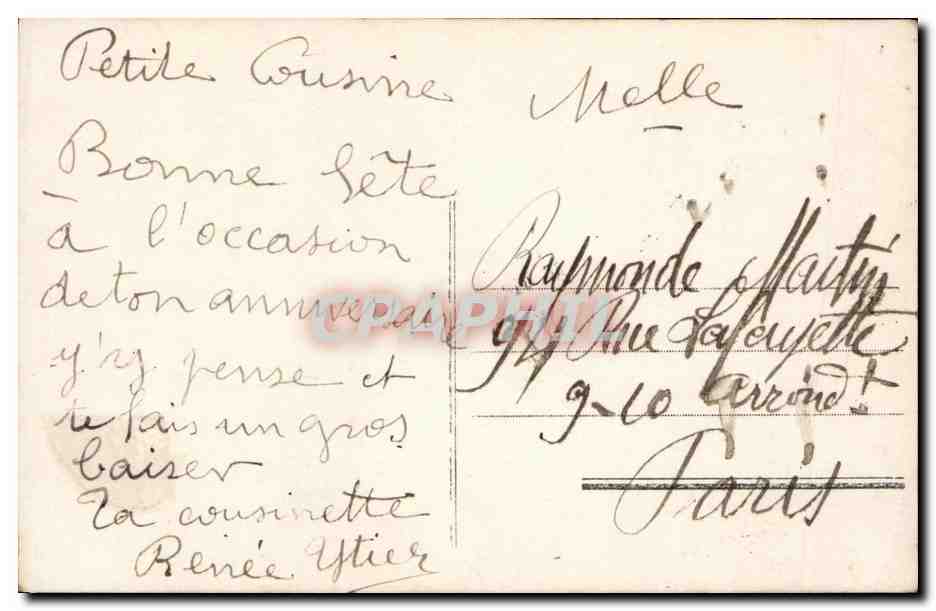 Petite Cousine
Bonne fête
a l'occasion
de ton anniversaire
j'y pense et
te fais un gros
baiser
Ta cousinette
Renée Ytier
Melle
Raymonde Martin
94 Rue Lafayette
9-10 arrondt
Paris
CPAPHIL